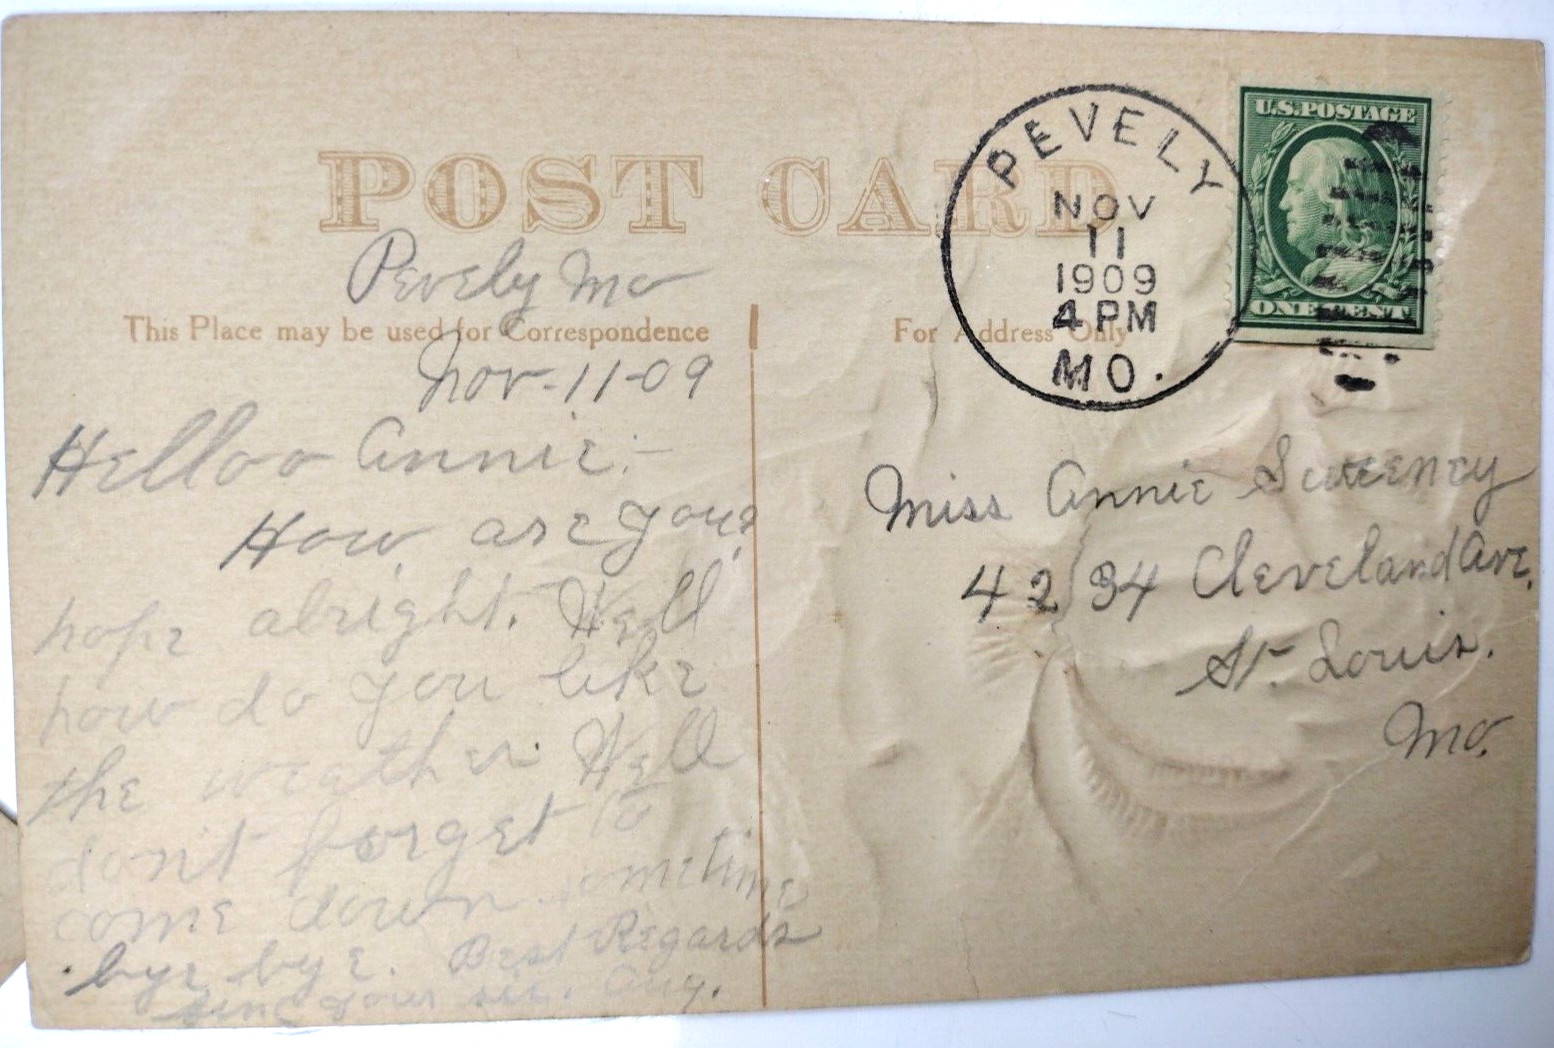 POST CARD
Pevely Mo
This Place may be used for Correspondence
Nov-11-09
Helloo Annie:-
How are you?
hope alright. Well
how do you like
the weather. Well
don't forget to
come down sometime
bye bye. Best Regards
your Aug.
For Address Only
PEVELY
NOV
11
1909
4 PM
MO.
U.S.POSTAGE
ONE CENT
Miss Annie Sweeney
4234 Cleveland Ave.
St. Louis.
Mo.